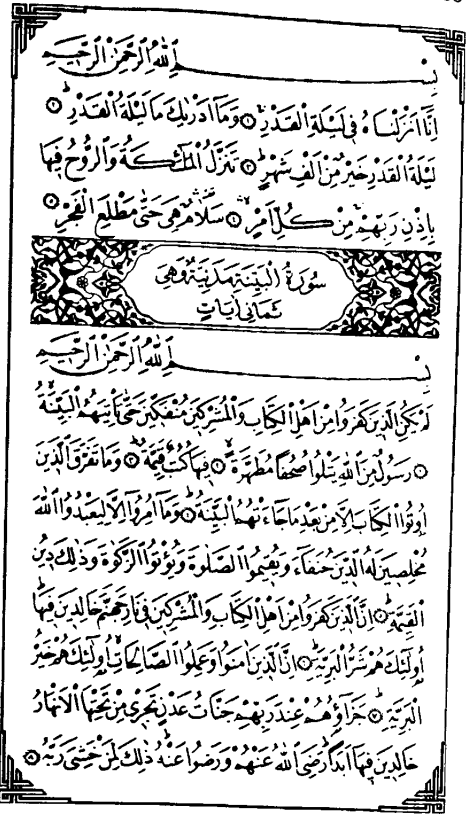 بِسْمِ اللهِ الرَّحْمٰنِ الرَّحِيمِ
اِنَّٓا اَنْزَلْنَاهُ فِى لَيْلَةِ الْقَدْرِۚ ﴿١﴾ وَمَٓا اَدْرٰيكَ مَا لَيْلَةُ الْقَدْرِۜ ﴿٢﴾
لَيْلَةُ الْقَدْرِ خَيْرٌ مِنْ اَلْفِ شَهْرٍۜ ﴿٣﴾ تَنَزَّلُ الْمَلٰٓئِكَةُ وَالرُّوحُ فِيهَا
بِاِذْنِ رَبِّهِمْۚ مِنْ كُلِّ اَمْرٍۙ ﴿٤﴾ سَلَامٌ۠ هِىَ حَتّٰى مَطْلَعِ الْفَجْرِ ﴿٥﴾
سُورَةُ الْبَيِّنَةِ مَدَنِيَّةٌ وَهِىَ
ثَمَانِى اٰيَاتٍ
بِسْمِ اللهِ الرَّحْمٰنِ الرَّحِيمِ
لَمْ يَكُنِ الَّذِينَ كَفَرُوا مِنْ اَهْلِ الْكِتَابِ وَالْمُشْرِكِينَ مُنْفَكِّينَ حَتّٰى تَاْتِيَهُمُ الْبَيِّنَةُۙ
﴿١﴾ رَسُولٌ مِنَ اللهِ يَتْلُوا صُحُفًا مُطَهَّرَةًۙ ﴿٢﴾ فِيهَا كُتُبٌ قَيِّمَةٌۜ ﴿٣﴾ وَمَا تَفَرَّقَ الَّذِينَ
اُوتُوا الْكِتَابَ اِلَّا مِنْ بَعْدِ مَا جَٓاءَتْهُمُ الْبَيِّنَةُۜ ﴿٤﴾ وَمَٓا اُمِرُٓوا اِلَّا لِيَعْبُدُوا اللهَ
مُخْلِصِينَ لَهُ الدِّينَ حُنَفَٓاءَ وَيُقِيمُوا الصَّلٰوةَ وَيُؤْتُوا الزَّكٰوةَ وَذٰلِكَ دِينُ
الْقَيِّمَةِۜ ﴿٥﴾ اِنَّ الَّذِينَ كَفَرُوا مِنْ اَهْلِ الْكِتَابِ وَالْمُشْرِكِينَ فِى نَارِ جَهَنَّمَ خَالِدِينَ فِيهَاۜ
اُولٰٓئِكَ هُمْ شَرُّ الْبَرِيَّةِۜ ﴿٦﴾ اِنَّ الَّذِينَ اٰمَنُوا وَعَمِلُوا الصَّالِحَاتِۙ اُولٰٓئِكَ هُمْ خَيْرُ
الْبَرِيَّةِۜ ﴿٧﴾ جَزَٓاؤُ۬هُمْ عِنْدَ رَبِّهِمْ جَنَّاتُ عَدْنٍ تَجْرِى مِنْ تَحْتِهَا الْاَنْهَارُ
خَالِدِينَ فِيهَٓا اَبَدًاۜ رَضِىَ اللهُ عَنْهُمْ وَرَضُوا عَنْهُۜ ذٰلِكَ لِمَنْ خَشِىَ رَبَّهُ ﴿٨﴾